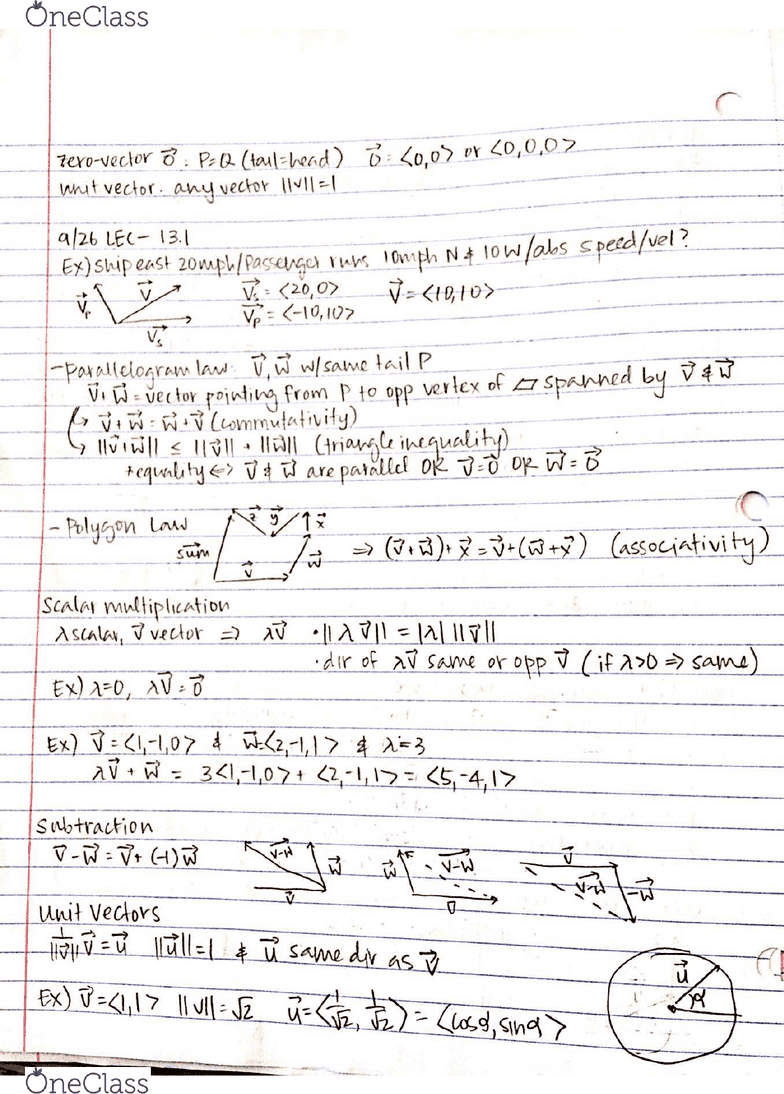 OneClass
zero-vector 0⃗ : P=Q (tail=head) 0⃗ : <0,0> or <0,0,0>
unit vector: any vector ||v||=1
9/26 LEC - 13.1
Ex) ship east 20mph/Passenger runs 10mph N & 10 W/abs speed/vel?
v⃗ₚ v⃗ v⃗ₛ = <20,0> v⃗ = <10,10>
v⃗ₛ v⃗ₚ = <-10,10>
- parallelogram law: v⃗, w⃗ w/same tail P
v⃗+w⃗ = vector pointing from P to opp vertex of ▱ spanned by v⃗ & w⃗
↳ v⃗+w⃗ = w⃗+v⃗ (commutativity)
↳ ||v⃗+w⃗|| ≤ ||v⃗|| + ||w⃗|| (triangle inequality)
*equality ↔ v⃗ & w⃗ are parallel OR v⃗=0⃗ OR w⃗=0⃗
- Polygon Law
sum z⃗ y⃗ x⃗ w⃗ v⃗ ⇒ (v⃗+w⃗)+x⃗ = v⃗+(w⃗+x⃗) (associativity)
Scalar multiplication
λ scalar, v⃗ vector ⇒ λv⃗ • ||λv⃗|| = |λ| ||v⃗||
• dir of λv⃗ same or opp v⃗ (if λ>0 ⇒ same)
Ex) λ=0, λv⃗=0⃗
Ex) v⃗=<1,-1,0> & w⃗=<2,-1,1> & λ=3
λv⃗ + w⃗ = 3<1,-1,0> + <2,-1,1> = <5,-4,1>
Subtraction
v⃗-w⃗ = v⃗+(-1)w⃗ v-w w⃗ v⃗ w⃗ v-w v⃗ v⃗ v-w -w⃗
Unit Vectors
1/||v⃗|| v⃗ = u⃗ ||u⃗||=1 & u⃗ same dir as v⃗
u⃗ α
Ex) v⃗=<1,1> ||v||=√2 u⃗=<1/√2, 1/√2> = <cosα, sinα>
OneClass